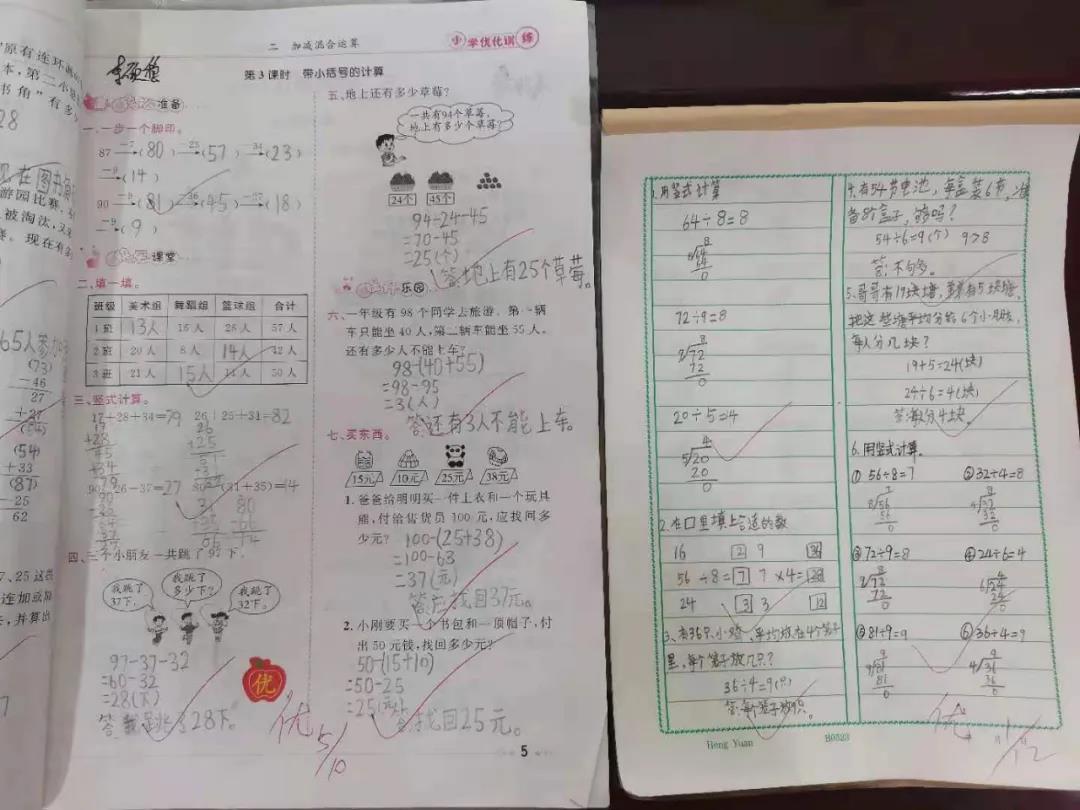 二 加减混合运算
小学优化训练
第3课时 带小括号的计算
准备
一、一步一个脚印。
87 (80) (57) (23)
(14)
90 (81) (45) (18)
(9)
课堂
二、填一填。
班级 美术组 舞蹈组 篮球组 合计
1班 13人 16人 28人 57人
2班 20人 8人 14人 42人
3班 21人 15人 14人 50人
三、竖式计算。
17+28+34=79 26+25+31=82
90-26-37=27 80-(31+35)=14
四、三个小朋友一共跳了97下。
我跳了37下。
我跳了多少下？
我跳了32下。
97-37-32
=60-32
=28(下)
28下。
优
优 5/10
五、地上还有多少草莓？
一共有94个草莓，
地上有多少个草莓？
24个 45个
94-24-45
=70-45
=25(个)
答:地上有25个草莓。
乐园
六、一年级有98个同学去旅游。第一辆
车只能坐40人，第二辆车能坐55人。
还有多少人不能上车？
98-(40+55)
=98-95
=3(人)
答:还有3人不能上车。
七、买东西。
15元 10元 25元 38元
1. 爸爸给明明买一件上衣和一个玩具
熊，付给售货员100元，应找回多
少元？
100-(25+38)
=100-63
=37(元)
答:应找回37元。
2. 小刚要买一个书包和一顶帽子，付
出50元钱，找回多少元？
50-(15+10)
=50-25
=25(元)
找回25元。
5
1.用竖式计算
64÷8=8
72÷9=8
20÷5=4
2.在口里填上合适的数
16 2 9 36
56÷8=7 7×4=28
24 3 3 12
3、有36只小鸡,平均放在4个笼子
里,每个笼子放几只?
36÷4=9(只)
答:每个笼子放9只。
4.有54节电池,每盒装6节,准
备8个盒子,够吗?
54÷6=9(个) 9>8
答:不够。
5.哥哥有19块糖,弟弟有5块糖,
把这些糖平均分给6个小朋友,
每人分几块?
19+5=24(块)
24÷6=4(块)
答:每人分4块。
6.用竖式计算。
①56÷8=7 ②32÷4=8
③72÷9=8 ④24÷6=4
⑤81÷9=9 ⑥36÷4=9
优
11/12
Heng Yuan B0523